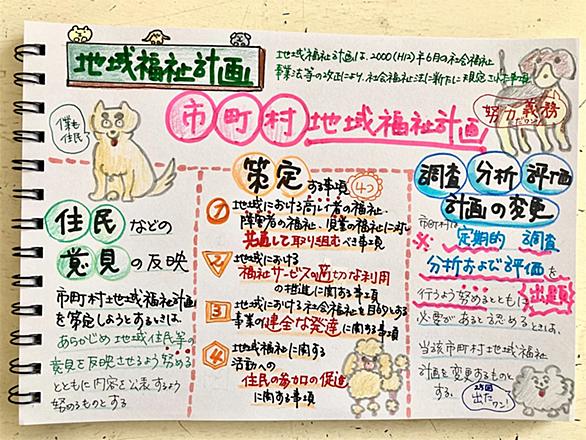 地域福祉計画
地域福祉計画は、2000(H12)年6月の社会福祉
事業法等の改正により、社会福祉法に新たに規定された事項
市町村地域福祉計画
努力義務
だワン!
僕も
住民
住民などの
意見の反映
市町村地域福祉計画
を策定しようとするときは、
あらかじめ地域住民等の
意見を反映させるよう努める
とともに内容を公表するよう
努めるものとする
策定する事項
4つ
1 地域における高齢者の福祉、
障害者の福祉、児童の福祉に対し
共通して取り組むべき事項
2 地域における
福祉サービスの適切な利用
の推進に関する事項
3 地域における社会福祉を目的とする
事業の健全な発達に関する事項
4 地域福祉に関する
活動への
住民の参加の促進
に関する事項
調査 分析 評価
計画の変更
市町村は
※定期的 調査
分析および評価を
行うよう努めるとともに
出題
必要があると認めるときは、
当該市町村地域福祉
計画を変更するものと
する。
出たワン!